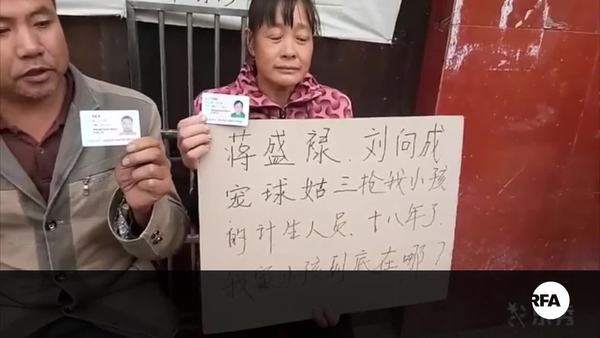 蒋盛禄、刘向成
宠球姑三抢我小孩
的计生人员、十八年了
我的小孩到底在哪?
RFA